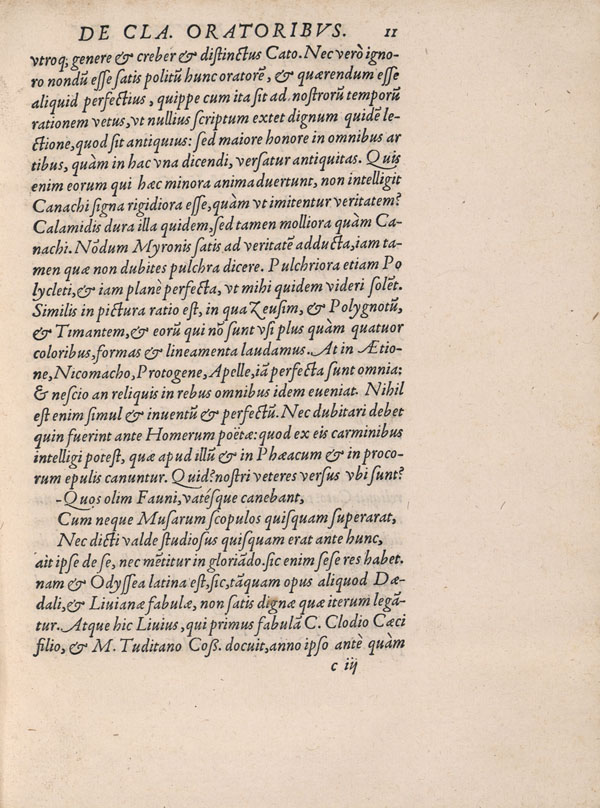 DE CLA. ORATORIBVS. 11
vtroq; genere & creber & distinctus Cato. Nec verò igno-
ro nondū esse satis politū hunc oratorē, & quærendum esse
aliquid perfectius, quippe cum ita sit ad nostrorū temporū
rationem vetus, vt nullius scriptum extet dignum quidē le-
ctione, quod sit antiquius: sed maiore honore in omnibus ar
tibus, quàm in hac vna dicendi, versatur antiquitas. Quis
enim eorum qui hæc minora animaduertunt, non intelligit
Canachi signa rigidiora esse, quàm vt imitentur veritatem?
Calamidis dura illa quidem, sed tamen molliora quàm Ca-
nachi. Nōdum Myronis satis ad veritatē adducta, iam ta-
men quæ non dubites pulchra dicere. Pulchriora etiam Po
lycleti, & iam planè perfecta, vt mihi quidem videri solēt.
Similis in pictura ratio est, in qua Zeusim, & Polygnotū,
& Timantem, & eorū qui nō sunt vsi plus quàm quatuor
coloribus, formas & lineamenta laudamus. At in Ætio-
ne, Nicomacho, Protogene, Apelle, iā perfecta sunt omnia:
& nescio an reliquis in rebus omnibus idem eueniat. Nihil
est enim simul & inuentū & perfectū. Nec dubitari debet
quin fuerint ante Homerum poëtæ: quod ex eis carminibus
intelligi potest, quæ apud illū & in Phæacum & in proco-
rum epulis canuntur. Quid? nostri veteres versus vbi sunt?
-Quos olim Fauni, vatésque canebant,
Cum neque Musarum scopulos quisquam superarat,
Nec dicti valde studiosus quisquam erat ante hunc,
ait ipse de se, nec mētitur in gloriādo. sic enim sese res habet.
nam & Odyssea latina est, sic, tāquam opus aliquod Dæ-
dali, & Liuianæ fabulæ, non satis dignæ quæ iterum legā-
tur. Atque hic Liuius, qui primus fabulā C. Clodio Cæci
filio, & M. Tuditano Coss. docuit, anno ipso antè quàm
c iij